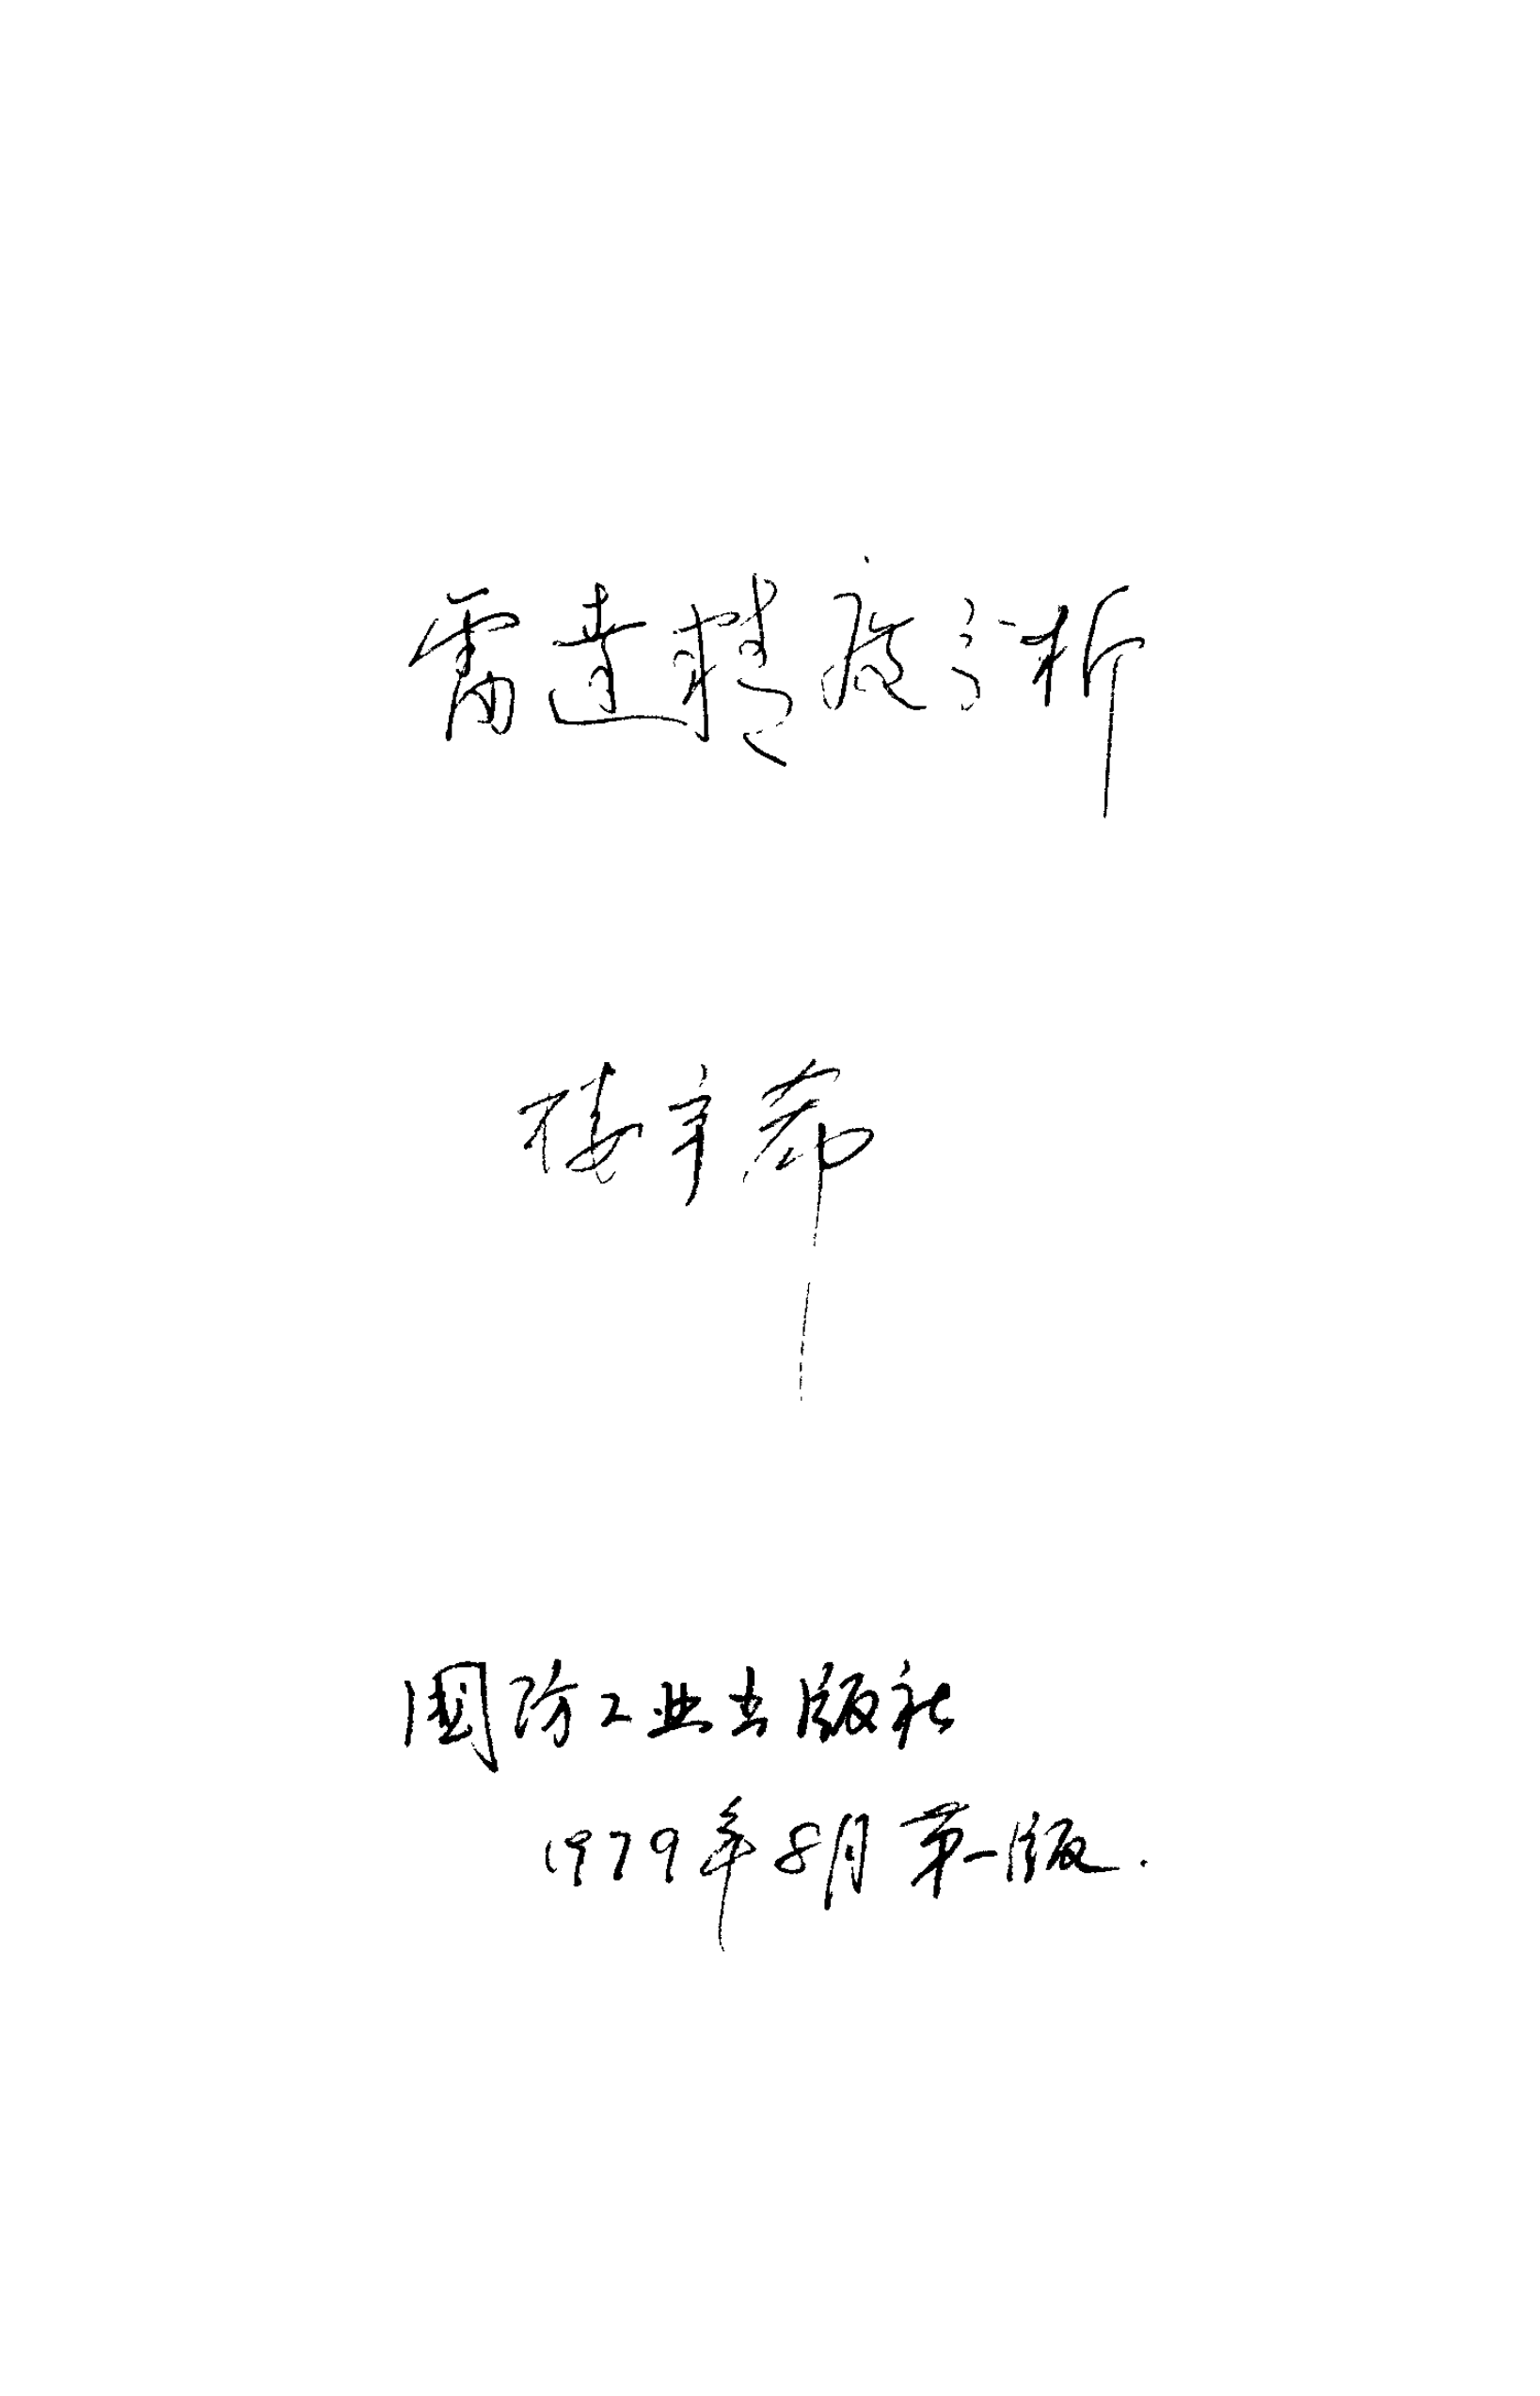 雷达精度分析
楼宇希
国防工业出版社
1979年8月第一版.